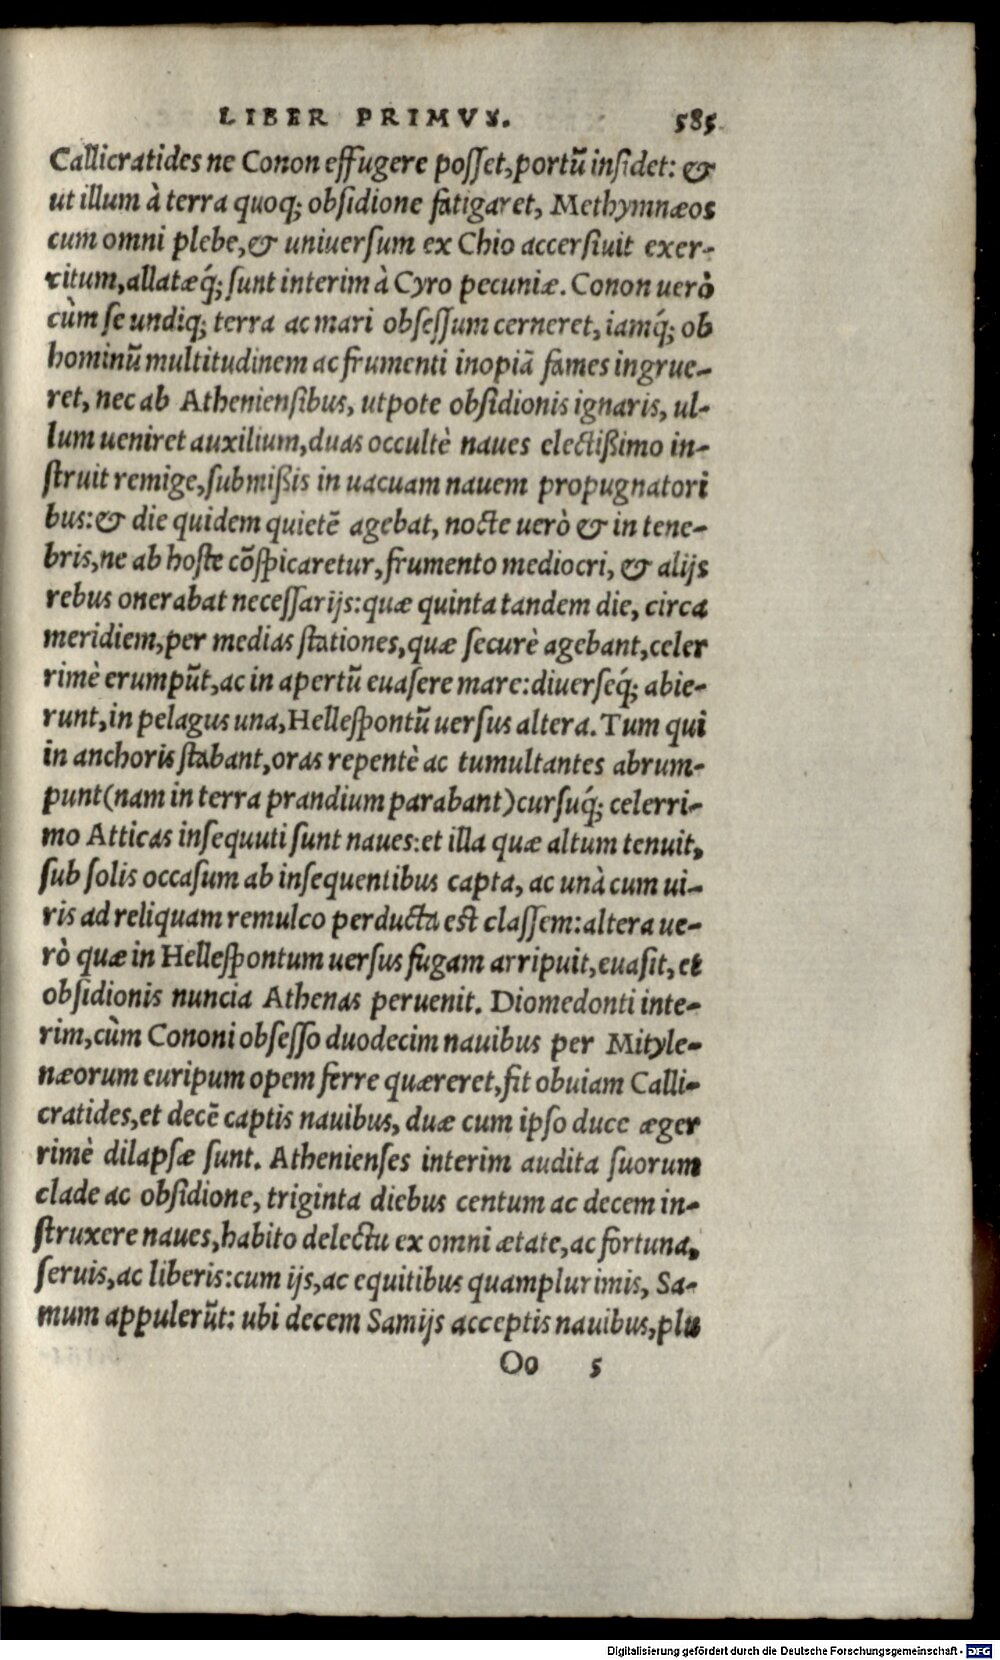 LIBER PRIMVS. 585
Callicratides ne Conon effugere posset, portū insidet: &
ut illum à terra quoq; obsidione fatigaret, Methymnæos
cum omni plebe, & uniuersum ex Chio accersiuit exer-
citum, allatæq́; sunt interim à Cyro pecuniæ. Conon uerò
cùm se undiq; terra ac mari obsessum cerneret, iamq́; ob
hominū multitudinem ac frumenti inopiā fames ingrue-
ret, nec ab Atheniensibus, utpote obsidionis ignaris, ul-
lum ueniret auxilium, duas occultè naues electißimo in-
struit remige, submißis in uacuam nauem propugnatori
bus: & die quidem quietē agebat, nocte uerò & in tene-
bris, ne ab hoste cōspicaretur, frumento mediocri, & alijs
rebus onerabat necessarijs: quæ quinta tandem die, circa
meridiem, per medias stationes, quæ securè agebant, celer
rimè erumpūt, ac in apertū euasere mare: diuerseq́; abie-
runt, in pelagus una, Hellespontū uersus altera. Tum qui
in anchoris stabant, oras repentè ac tumultantes abrum-
punt (nam in terra prandium parabant) cursuq́; celerri-
mo Atticas insequuti sunt naues: et illa quæ altum tenuit,
sub solis occasum ab insequentibus capta, ac unà cum ui-
ris ad reliquam remulco perducta est classem: altera ue-
rò quæ in Hellespontum uersus fugam arripuit, euasit, et
obsidionis nuncia Athenas peruenit. Diomedonti inte-
rim, cùm Cononi obsesso duodecim nauibus per Mityle-
næorum euripum opem ferre quæreret, fit obuiam Calli-
cratides, et decē captis nauibus, duæ cum ipso duce æger
rimè dilapsæ sunt. Athenienses interim audita suorum
clade ac obsidione, triginta diebus centum ac decem in-
struxere naues, habito delectu ex omni ætate, ac fortuna,
seruis, ac liberis: cum ijs, ac equitibus quamplurimis, Sa-
mum appulerūt: ubi decem Samijs acceptis nauibus, plu
Oo 5
Digitalisierung gefördert durch die Deutsche Forschungsgemeinschaft - DFG